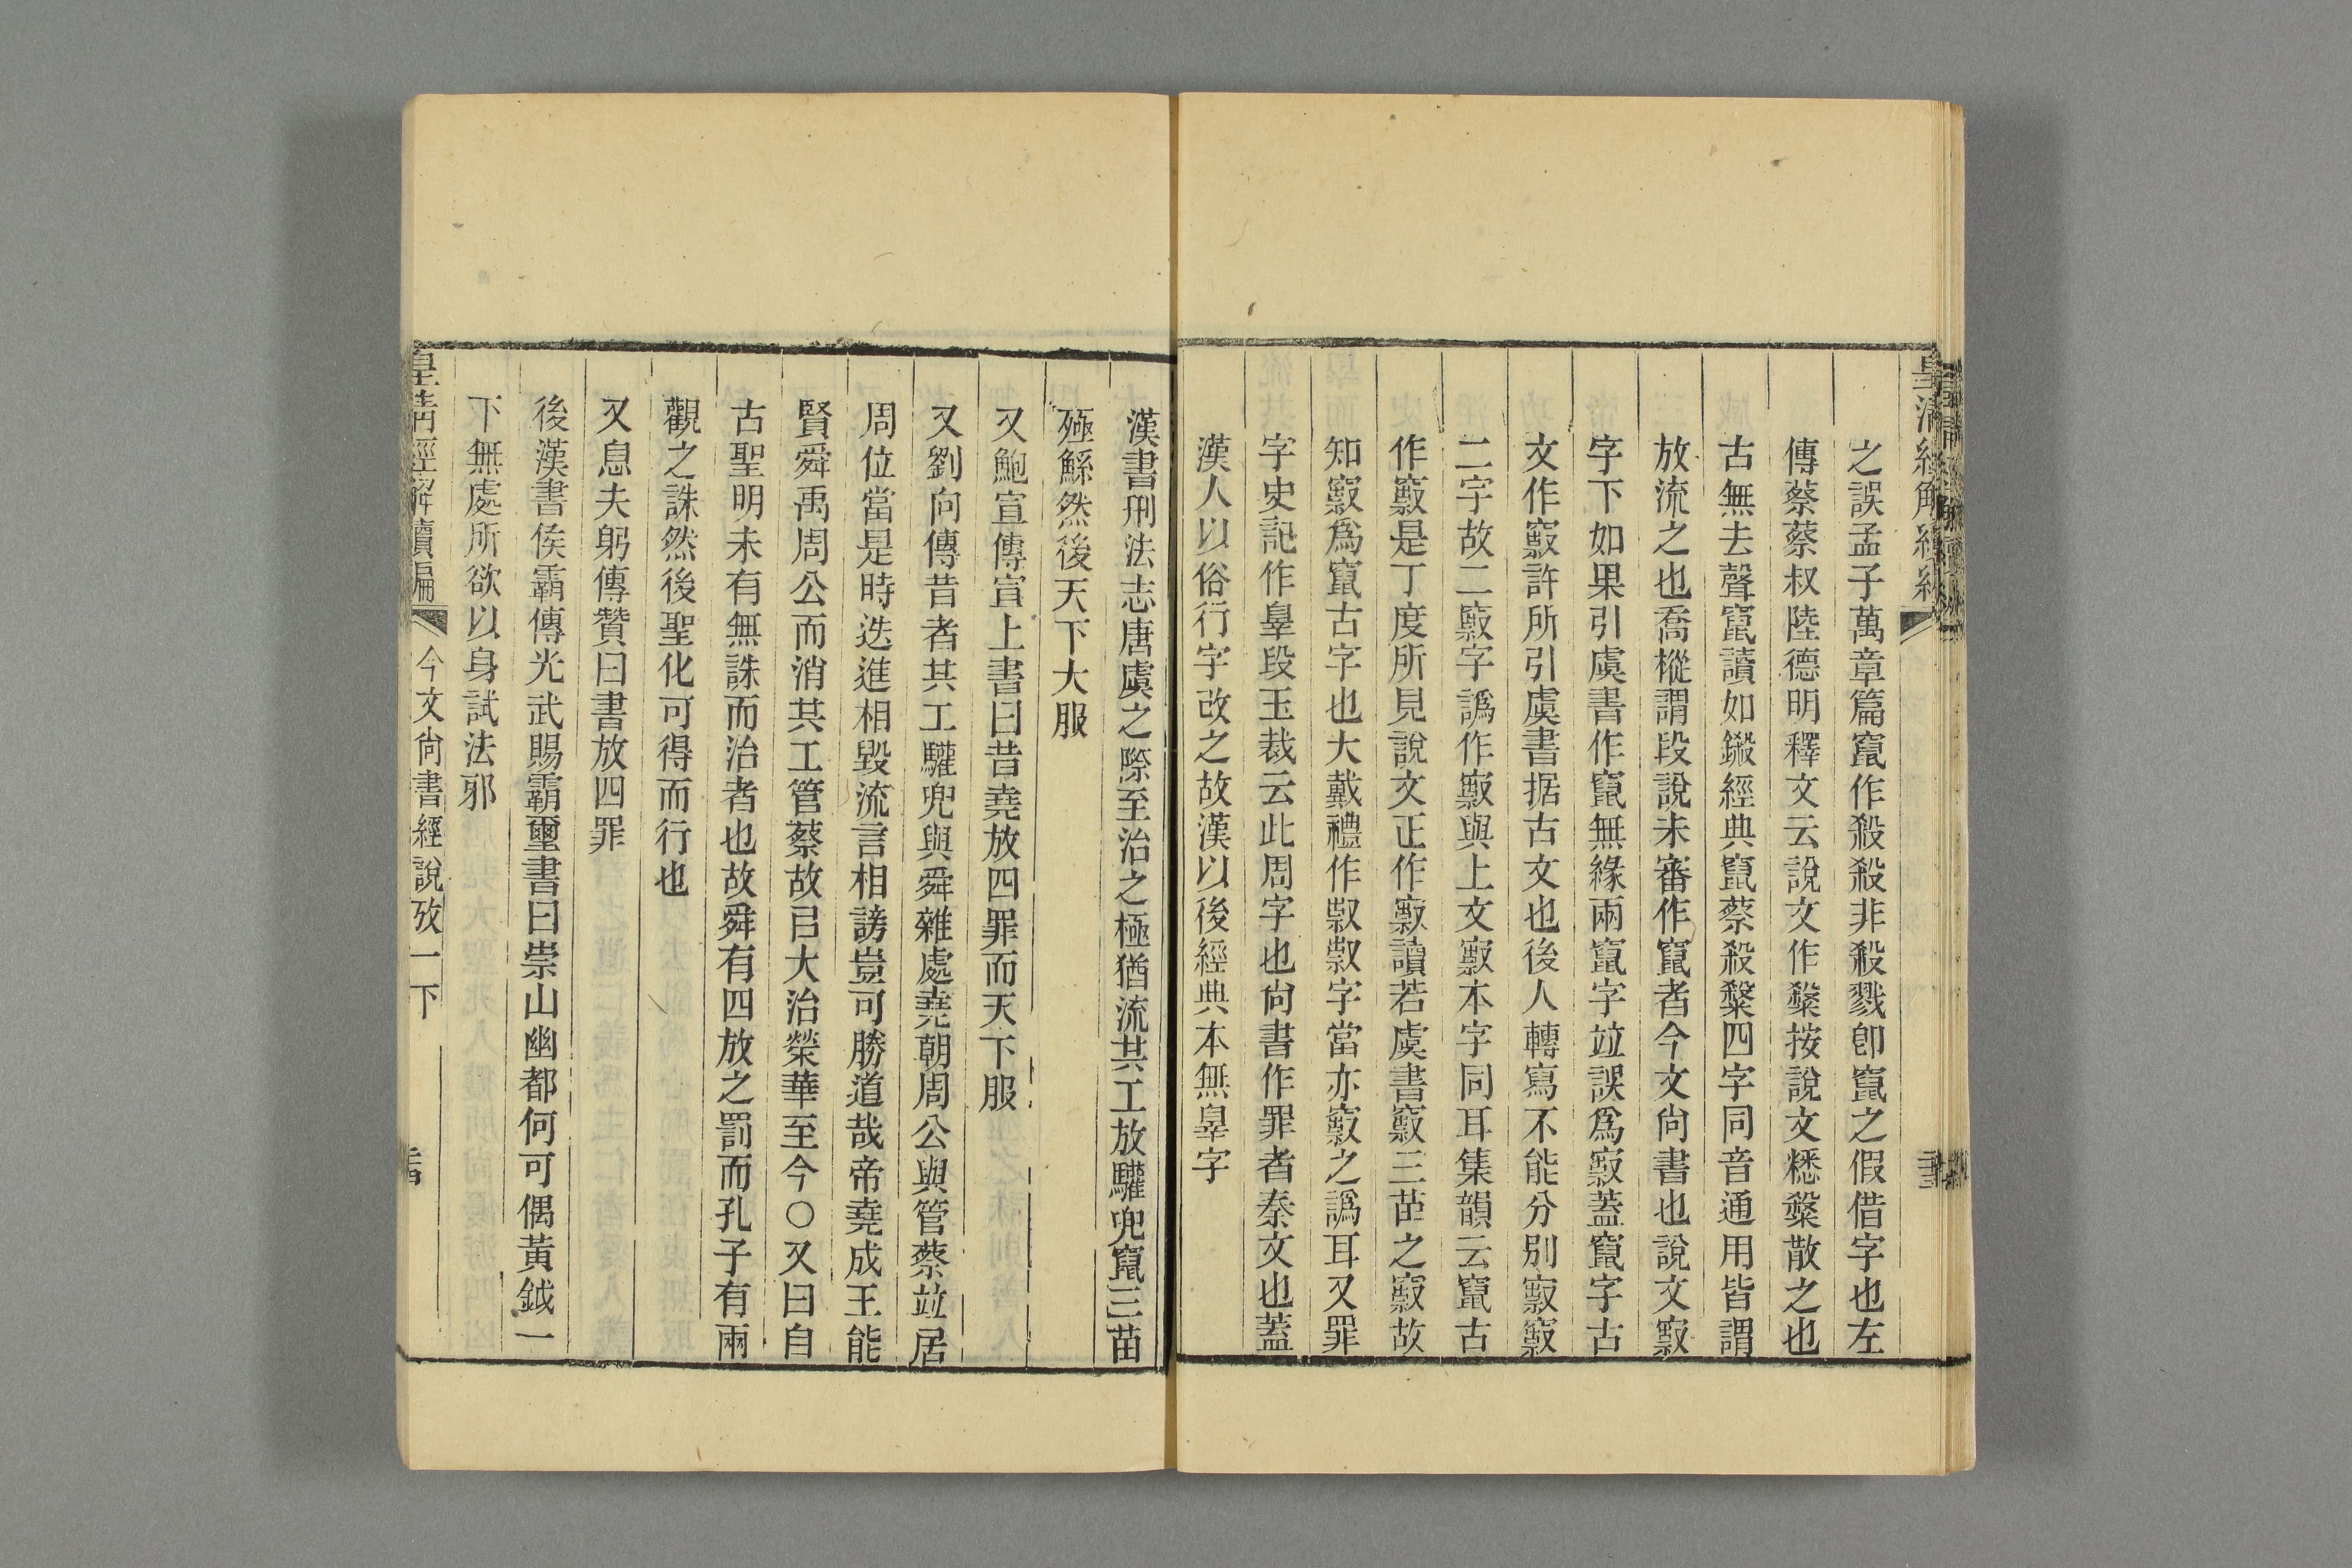 之誤孟子萬章篇竄作殺殺非殺戮卽竄之假借字也左
傳蔡蔡叔陸德明釋文云說文作𥻦按說文𥻦𥻦散之也
古無去聲竄讀如鎩經典竄蔡殺𥻦四字同音通用皆謂
放流之也喬樅謂段說未審作竄者今文尙書也說文㝮
字下如果引虞書作竄無緣兩竄字竝誤爲㝮蓋竄字古
文作𥨥許所引虞書据古文也後人轉寫不能分別㝮𥨥
二字故二𥨥字譌作㝮與上文㝮本字同耳集韻云竄古
作𥨥是丁度所見說文正作㝮讀若虞書𥨥三苗之𥨥故
知𥨥爲竄古字也大戴禮作㕟㕟字當亦𥨥之譌耳又罪
字史記作辠段玉裁云此周字也尙書作罪者秦文也蓋
漢人以俗行字改之故漢以後經典本無辠字
漢書刑法志唐虞之際至治之極猶流共工放驩兜竄三苗
殛鯀然後天下大服
又鮑宣傳宣上書曰昔堯放四罪而天下服
又劉向傳昔者共工驩兜與舜雜處堯朝周公與管蔡竝居
周位當是時迭進相毀流言相謗豈可勝道哉帝堯成王能
賢舜禹周公而消共工管蔡故㠯大治榮華至今○又曰自
古聖明未有無誅而治者也故舜有四放之罰而孔子有兩
觀之誅然後聖化可得而行也
又息夫躬傳贊曰書放四罪
後漢書侯霸傳光武賜霸璽書曰崇山幽都何可偶黃鉞一
下無處所欲以身試法邪
皇淸經解續編
今文尙書經說攷一下